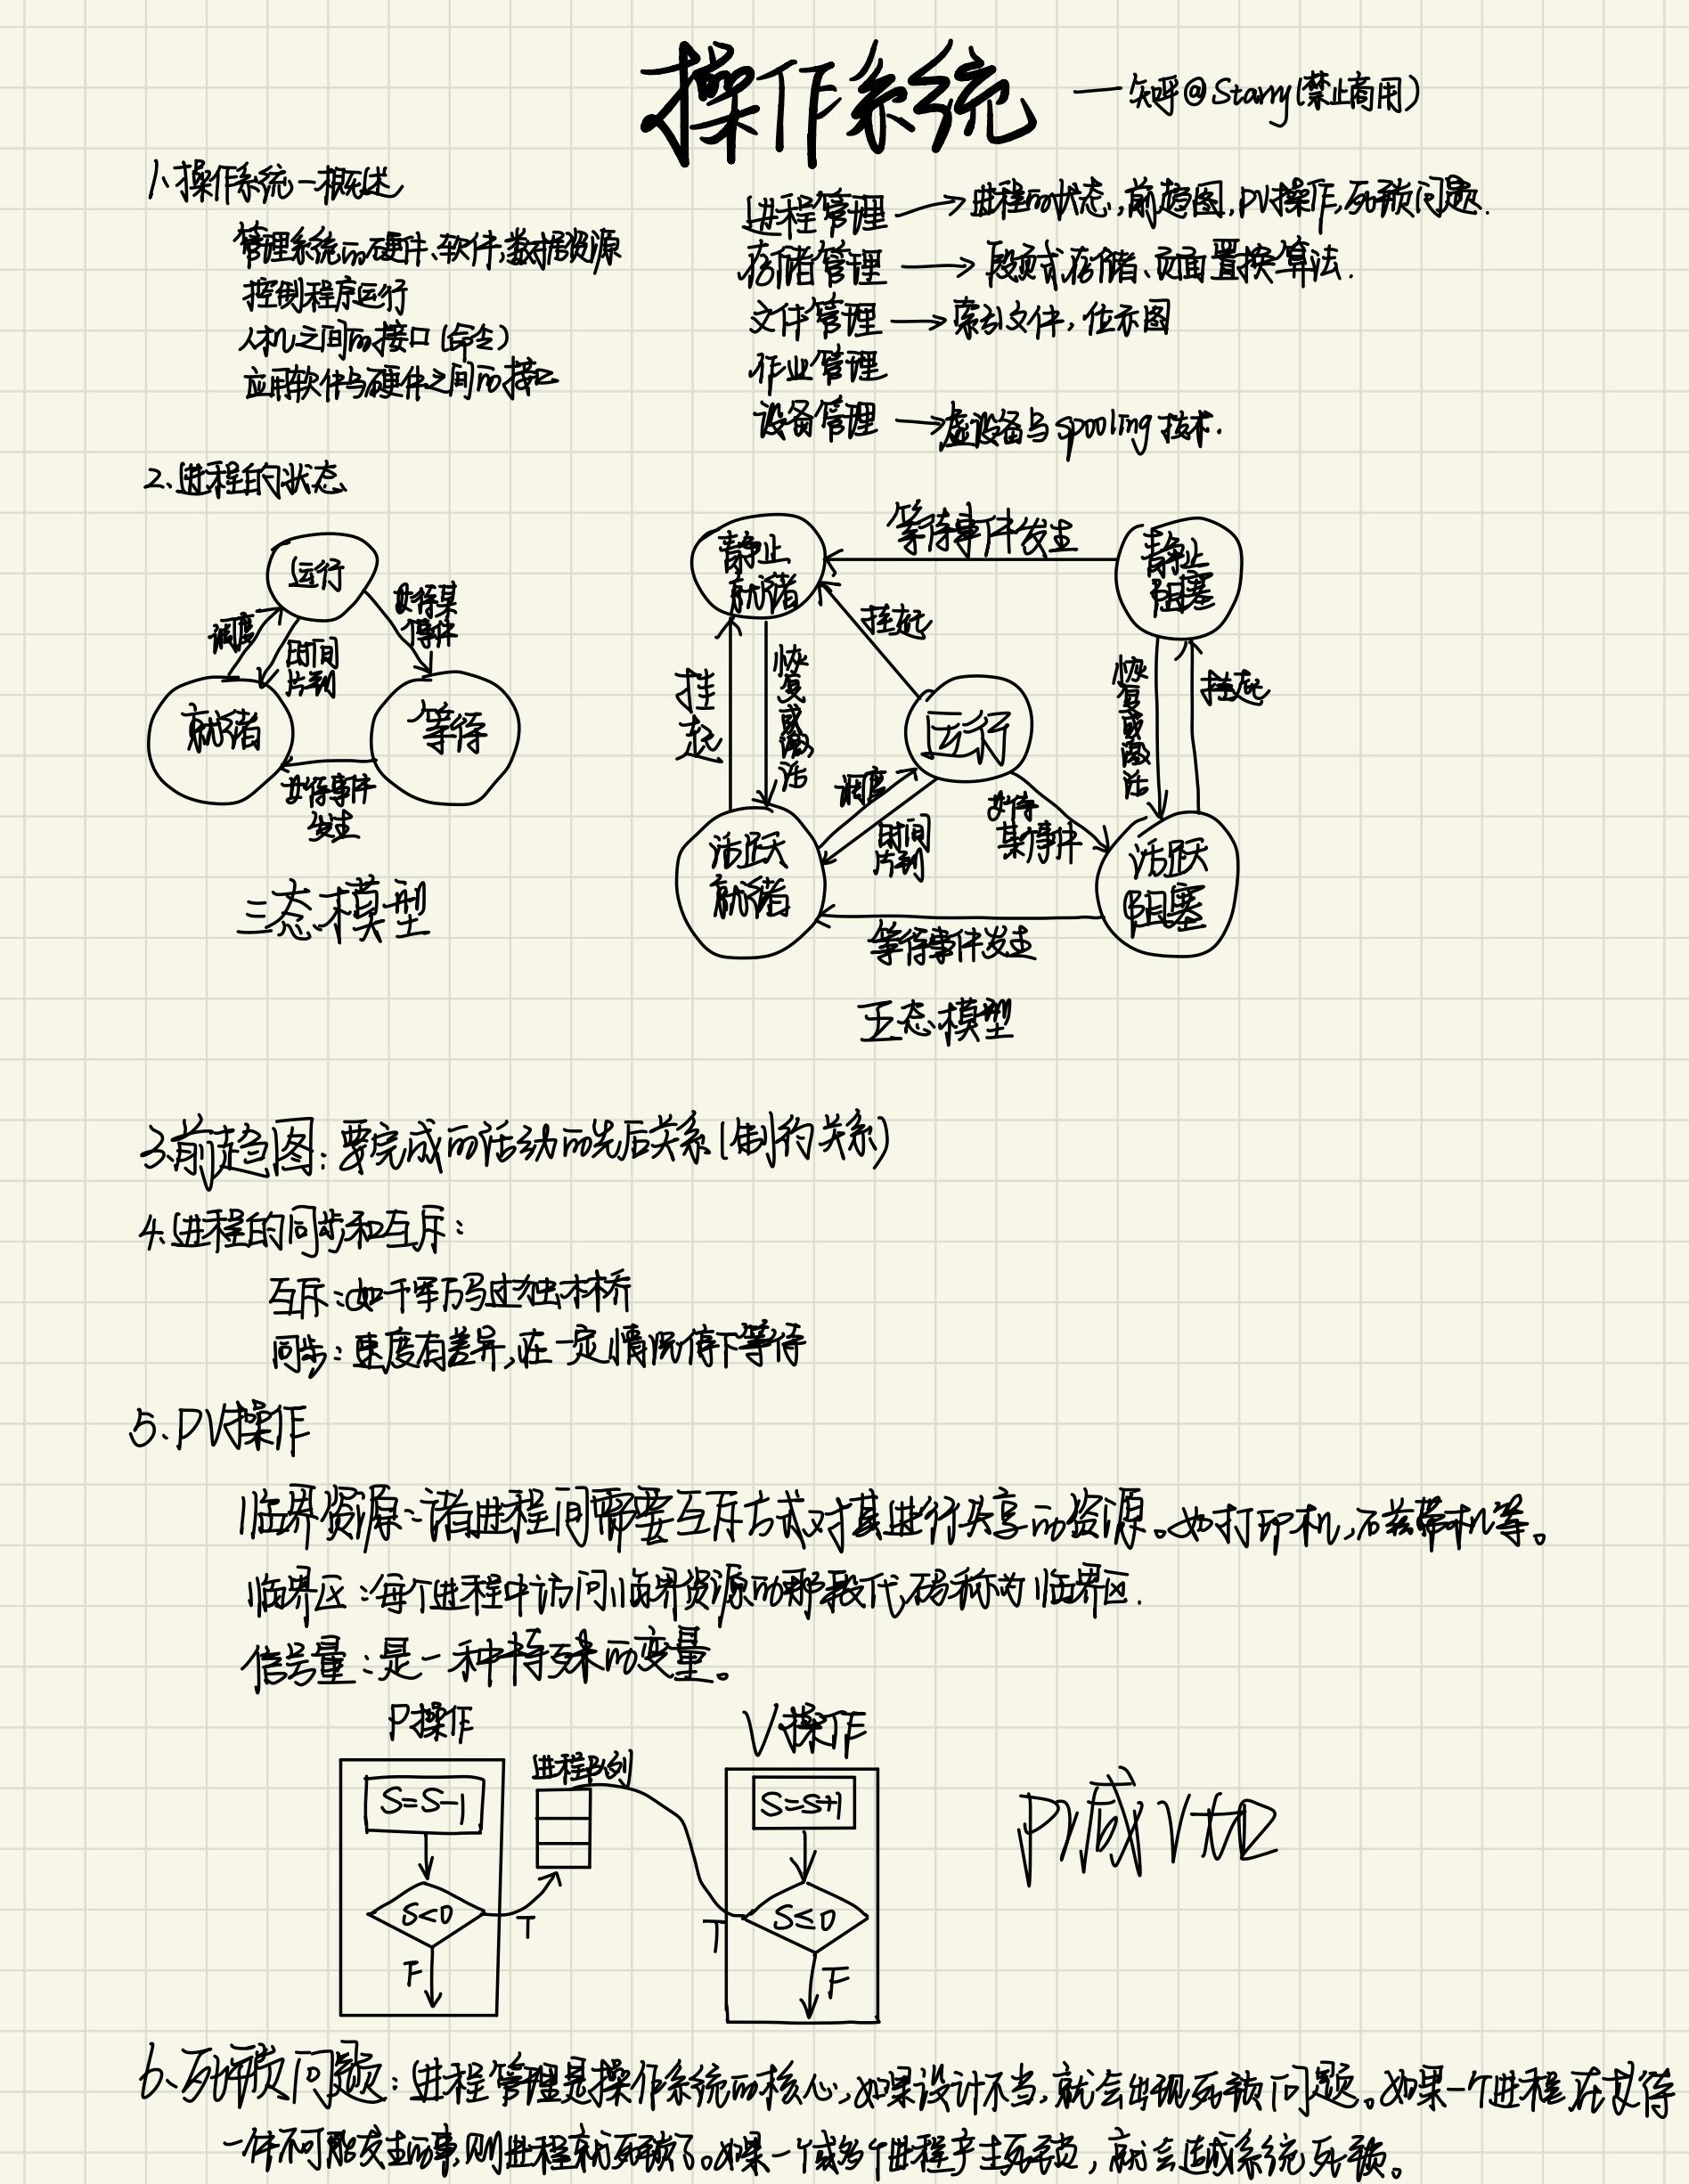 操作系统
——知乎@Starry(禁止商用)
1、操作系统-概述
管理系统的硬件、软件、数据资源
控制程序运行
人机之间的接口(命令)
应用软件与硬件之间的接口
进程管理 → 进程的状态,前趋图,PV操作,死锁问题.
存储管理 → 段页式存储、页面置换算法.
文件管理 → 索引文件,位示图
作业管理
设备管理 → 虚设备与spooling技术.
2、进程的状态
运行
调度
时间
片到
等待某
事件
就绪
等待
等待事件
发生
三态模型
静止
就绪
等待事件发生
静止
阻塞
挂起
挂
起
恢
复
或
激
活
运行
恢
复
或
激
活
挂起
调度
时间
片到
等待
某事件
活跃
就绪
活跃
阻塞
等待事件发生
五态模型
3、前趋图:要完成的活动的先后关系(制约关系)
4、进程的同步和互斥:
互斥:如千军万马过独木桥
同步:速度有差异,在一定情况停下等待
5.PV操作
临界资源:诸进程间需要互斥方式对其进行共享的资源。如打印机,磁带机等。
临界区:每个进程中访问临界资源的那段代码称为临界区.
信号量:是一种特殊的变量。
P操作
进程队列
V操作
S=S-1
S=S+1
P减V加
S<0
T
T
S≤0
F
F
6、死锁问题:进程管理是操作系统的核心,如果设计不当,就会出现死锁问题。如果一个进程在等待
一件不可能发生的事,则进程就死锁了。如果一个或多个进程产生死锁,就会造成系统死锁。